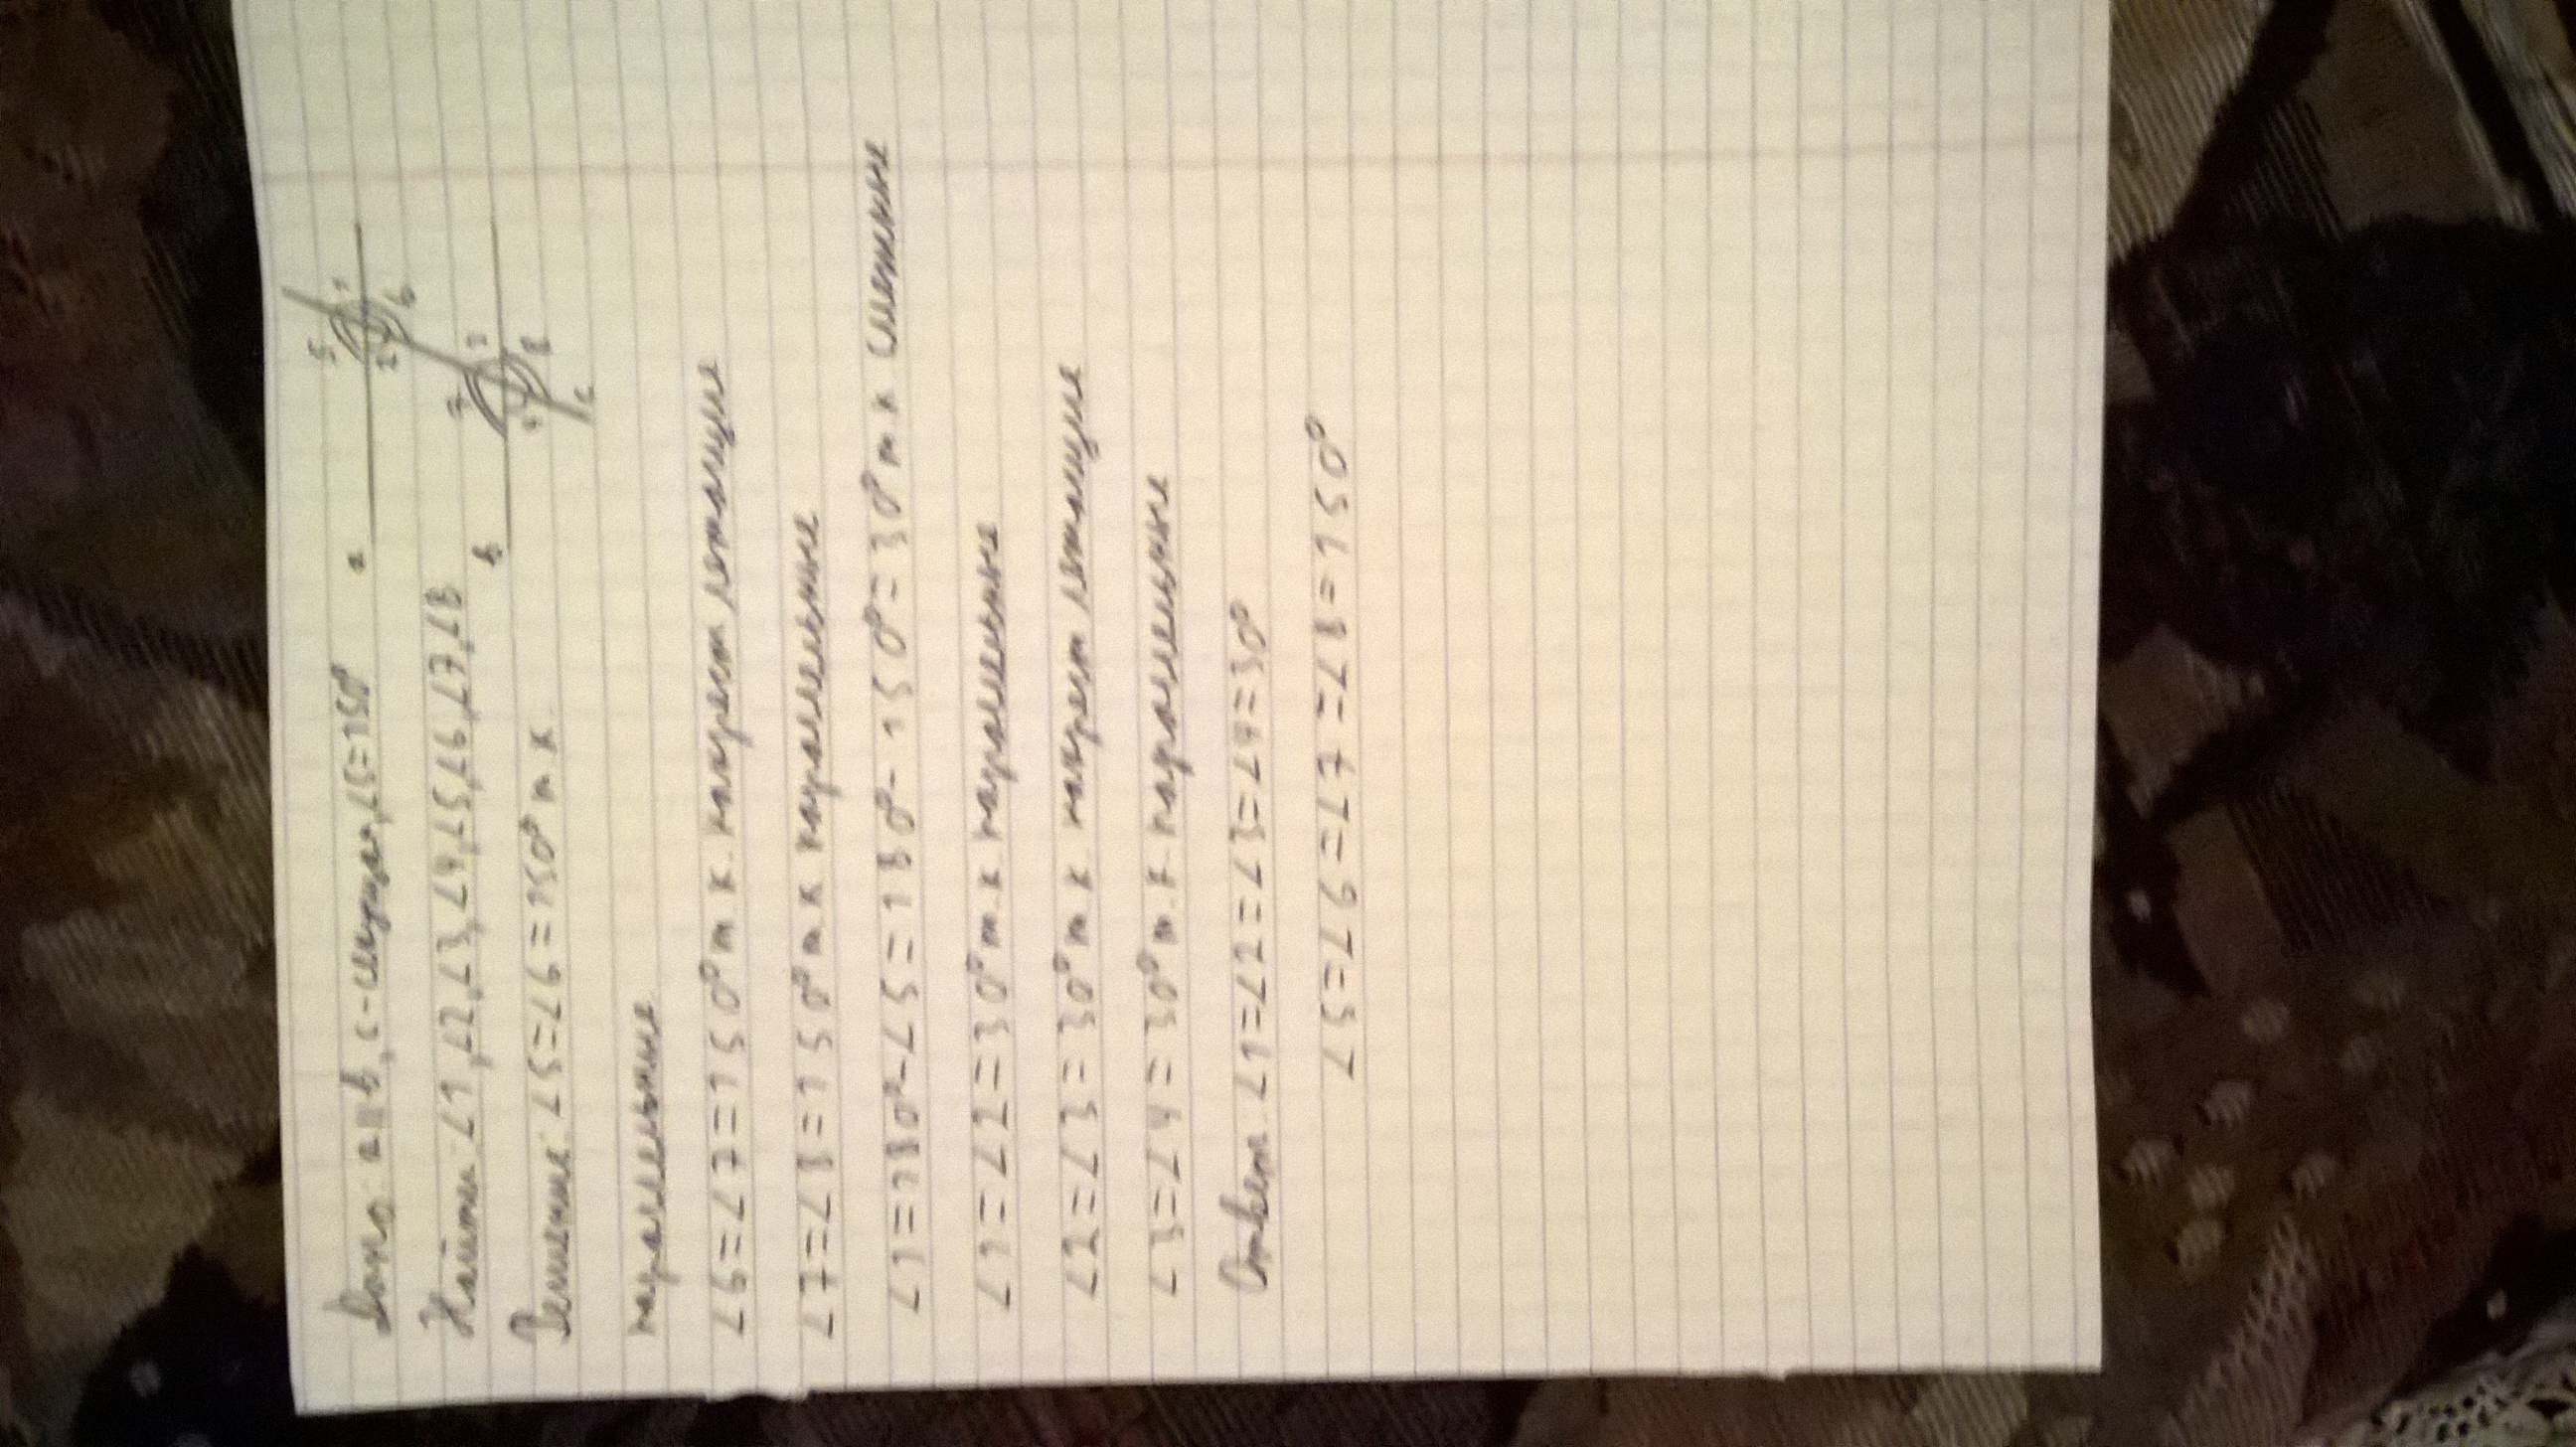 Дано: a||b, c-секущая, ∠5=150°
Найти: ∠1, ∠2, ∠3, ∠4, ∠5, ∠6, ∠7, ∠8
Решение: ∠5=∠6=150° т к
параллельные
∠6=∠7=150° т к. накрест лежащие
∠7=∠8=150° т к параллельные
∠1=180°-∠5=180°-150°=30° т к смежные
∠1=∠2=30° т к параллельные
∠2=∠3=30° т к накрест лежащие
∠3=∠4=30° т.к параллельные
Ответ: ∠1=∠2=∠3=∠4=30°
∠5=∠6=∠7=∠8=150°
a
5 1
2 6
b
7 3
4 8
c